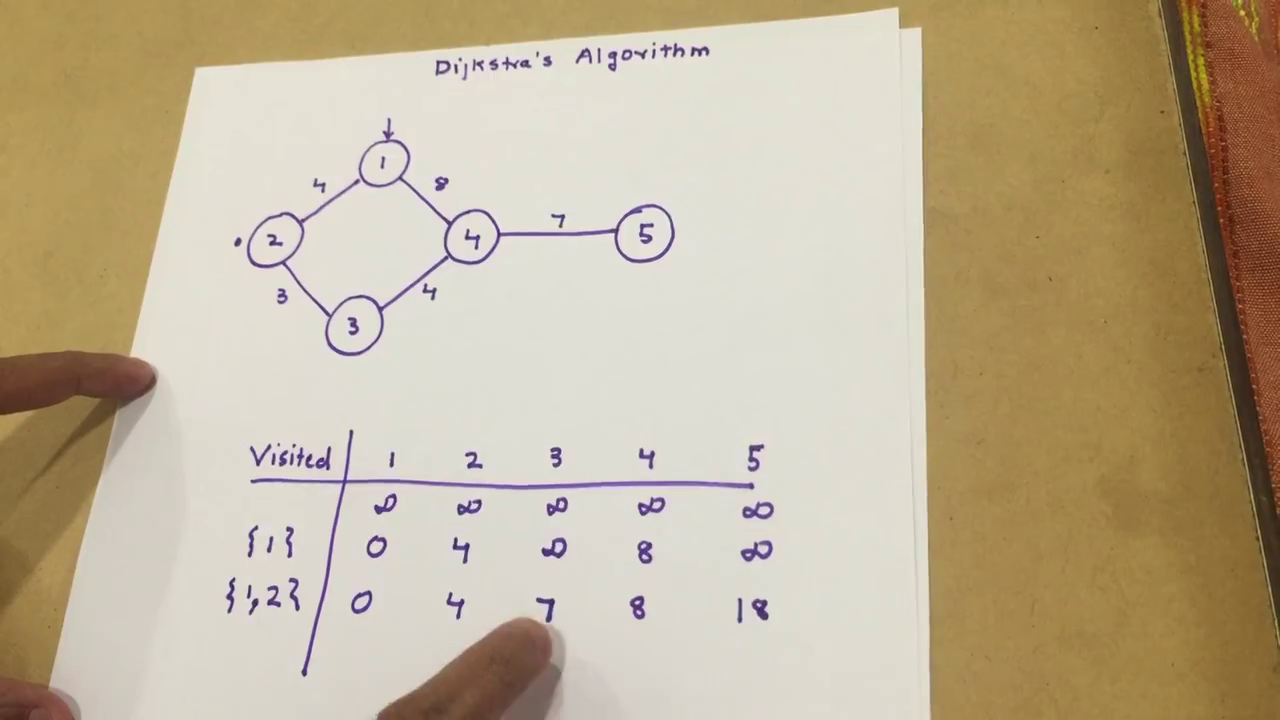 Dijkstra's Algorithm
1
4 8
2 4 7 5
3 4
3
Visited 1 2 3 4 5
∞ ∞ ∞ ∞ ∞
{1} 0 4 ∞ 8 ∞
{1,2} 0 4 7 8 18